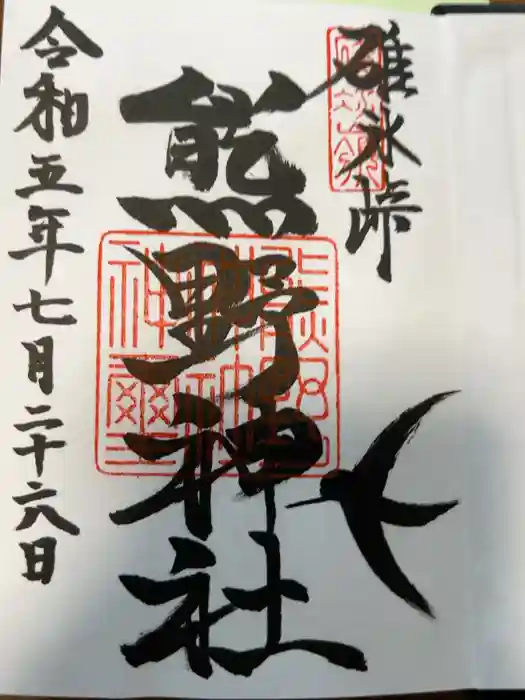 碓氷峠
熊野神社
令和五年七月二十六日